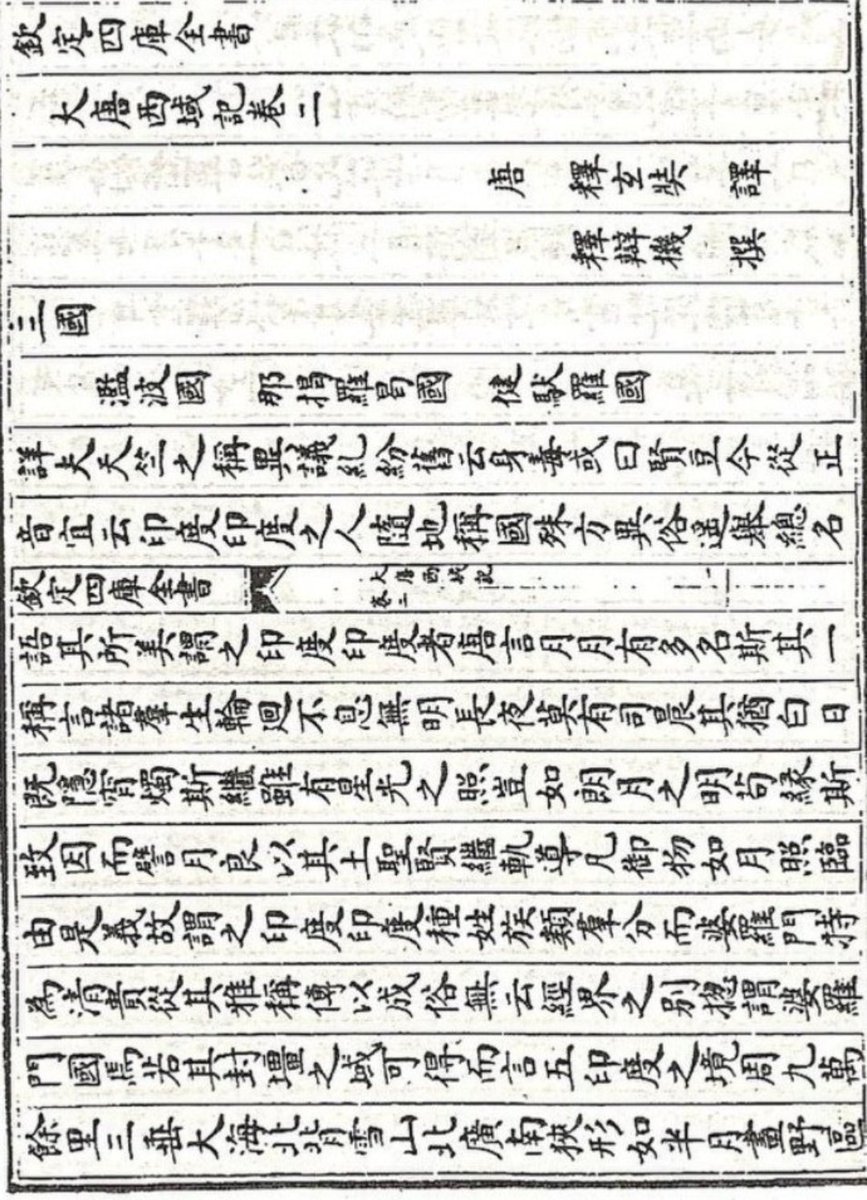 欽定四庫全書
大唐西域記卷二
唐 釋玄奘 譯
釋辯機 撰
三國
濫波國 那揭羅曷國 健馱羅國
詳夫天竺之稱異議糺紛舊云身毒或曰賢豆今從正
音宜云印度印度之人隨地稱國殊方異俗遙舉總名
欽定四庫全書 大唐西域記 卷二 一
語其所美謂之印度印度者唐言月月有多名斯其一
稱言諸羣生輪廻不息無明長夜莫有司晨其猶白日
既隱宵燭斯繼雖有星光之照豈如朗月之明苟緣斯
致因而譬月良以其土聖賢繼軌導凡御物如月照臨
由是義故謂之印度印度種姓族類羣分而婆羅門特
為清貴從其雅稱傳以成俗無云經界之別摠謂婆羅
門國焉若其封壃之域可得而言五印度之境周九萬
餘里三垂大海北背雪山北廣南狹形如半月畫野區